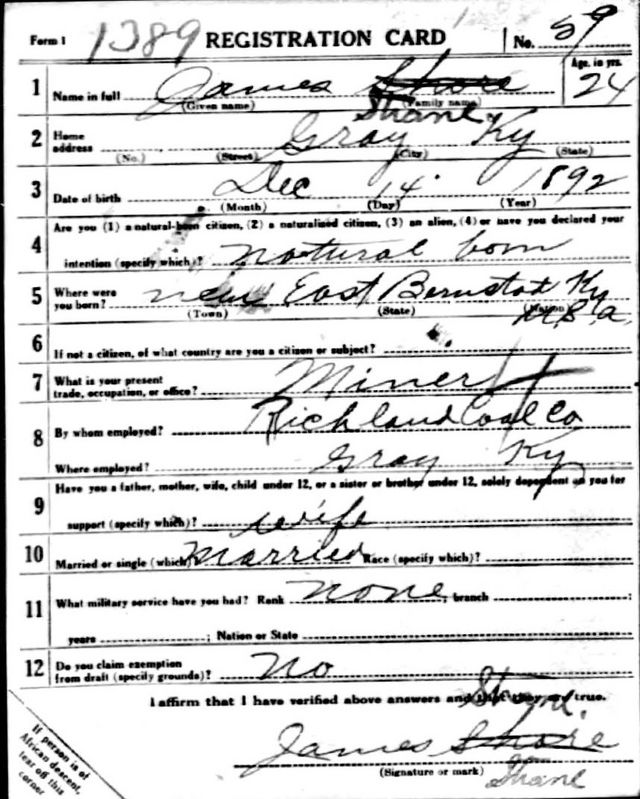 Form 1 1389 REGISTRATION CARD No. 59
Age, in yrs.
1 Name in full James Shore 24
(Given name) (Family name)
Shane
2 Home address Gray Ky
(No.) (Street) (City) (State)
3 Date of birth Dec 14 1892
(Month) (Day) (Year)
4 Are you (1) a natural-born citizen, (2) a naturalized citizen, (3) an alien, (4) or have you declared your
intention (specify which)? natural born
5 Where were you born? East Ky
(Town) (State) (Nation)
6 If not a citizen, of what country are you a citizen or subject?
7 What is your present trade, occupation, or office? Miner
8 By whom employed? Richland Coal Co
Where employed? Gray Ky
9 Have you a father, mother, wife, child under 12, or a sister or brother under 12, solely dependent on you for
support (specify which)? wife
10 Married or single (which)? Married Race (specify which)?
11 What military service have you had? Rank none, branch ;
years ; Nation or State
12 Do you claim exemption from draft (specify grounds)? No
I affirm that I have verified above answers and that they are true.
Shane
James Shore
(Signature or mark) Shane
If person is of
African descent,
tear off this
corner